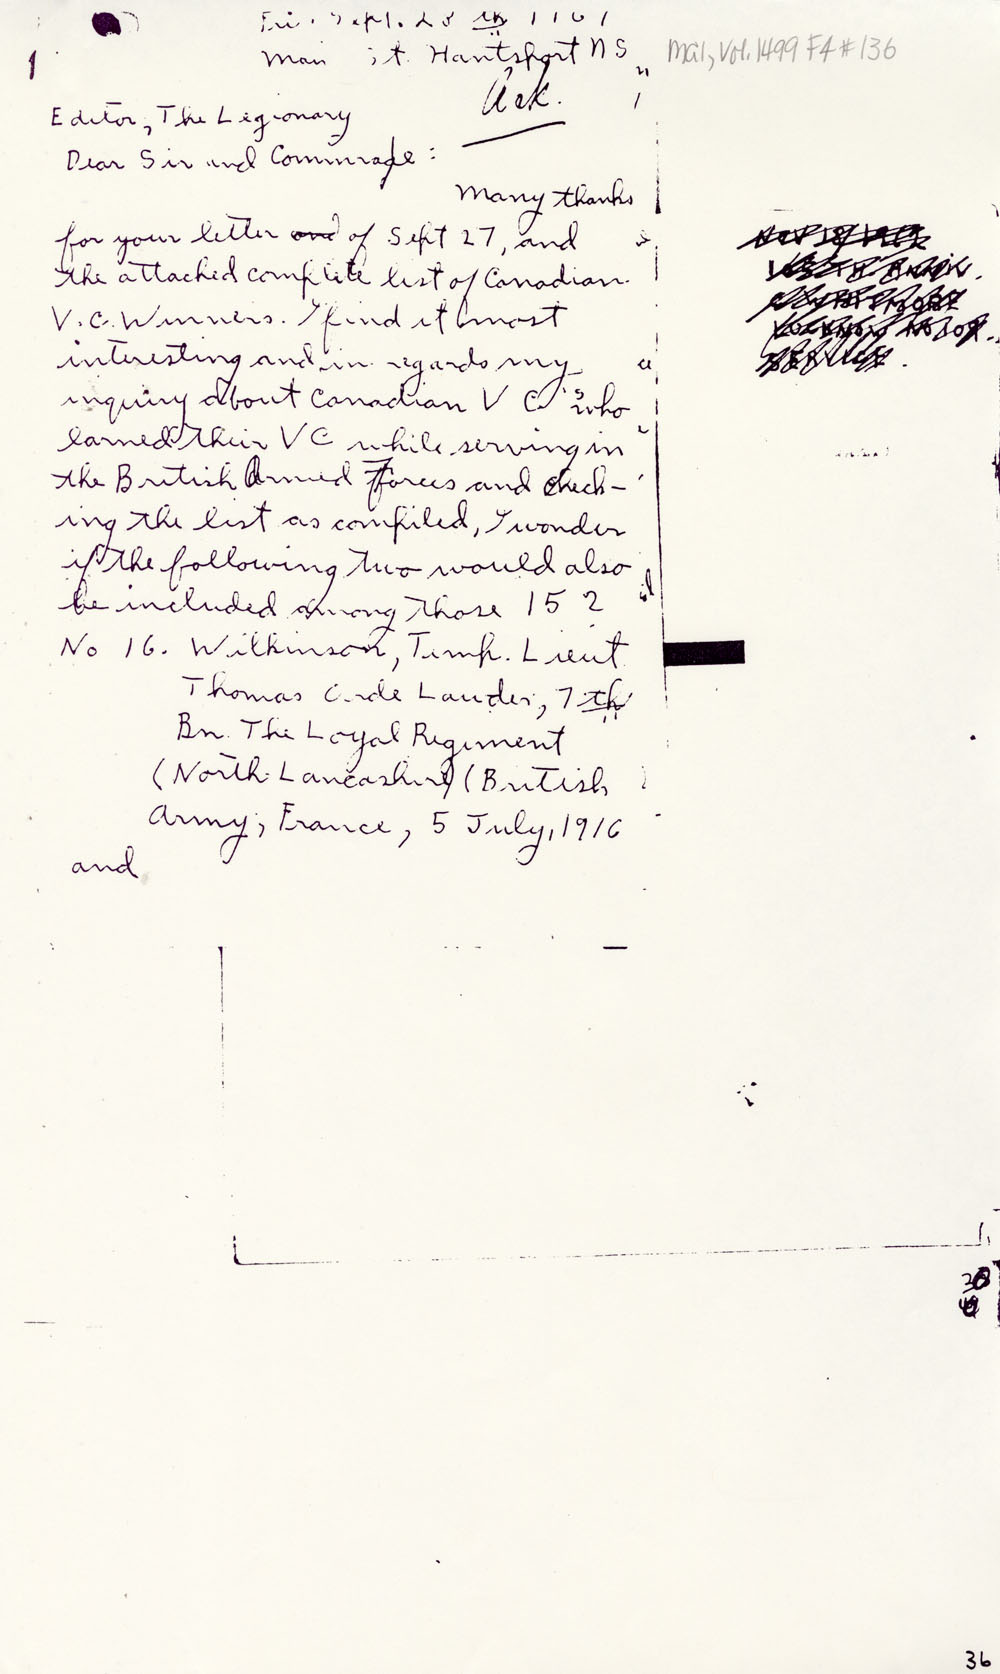 Fri. Sept. 28 th
Main st. Hantsport NS
MG1, Vol. 1499 F4 #136
1
Ack.
Editor, The Legionary
Dear Sir and Commrade:
Many thanks
for your letter and of Sept 27, and
the attached complete list of Canadian
V.C. Winners. I find it most
interesting and in regards my
inquiry about Canadian V C's who
earned their VC while serving in
the British Armed Forces and check-
ing the list as compiled, I wonder
if the following two would also
be included among those 15?
No 16. Wilkinson, Temp. Lieut
Thomas Orde Lauder, 7th
Bn. The Loyal Regiment
(North Lancashire) (British
Army, France, 5 July, 1916
and
36